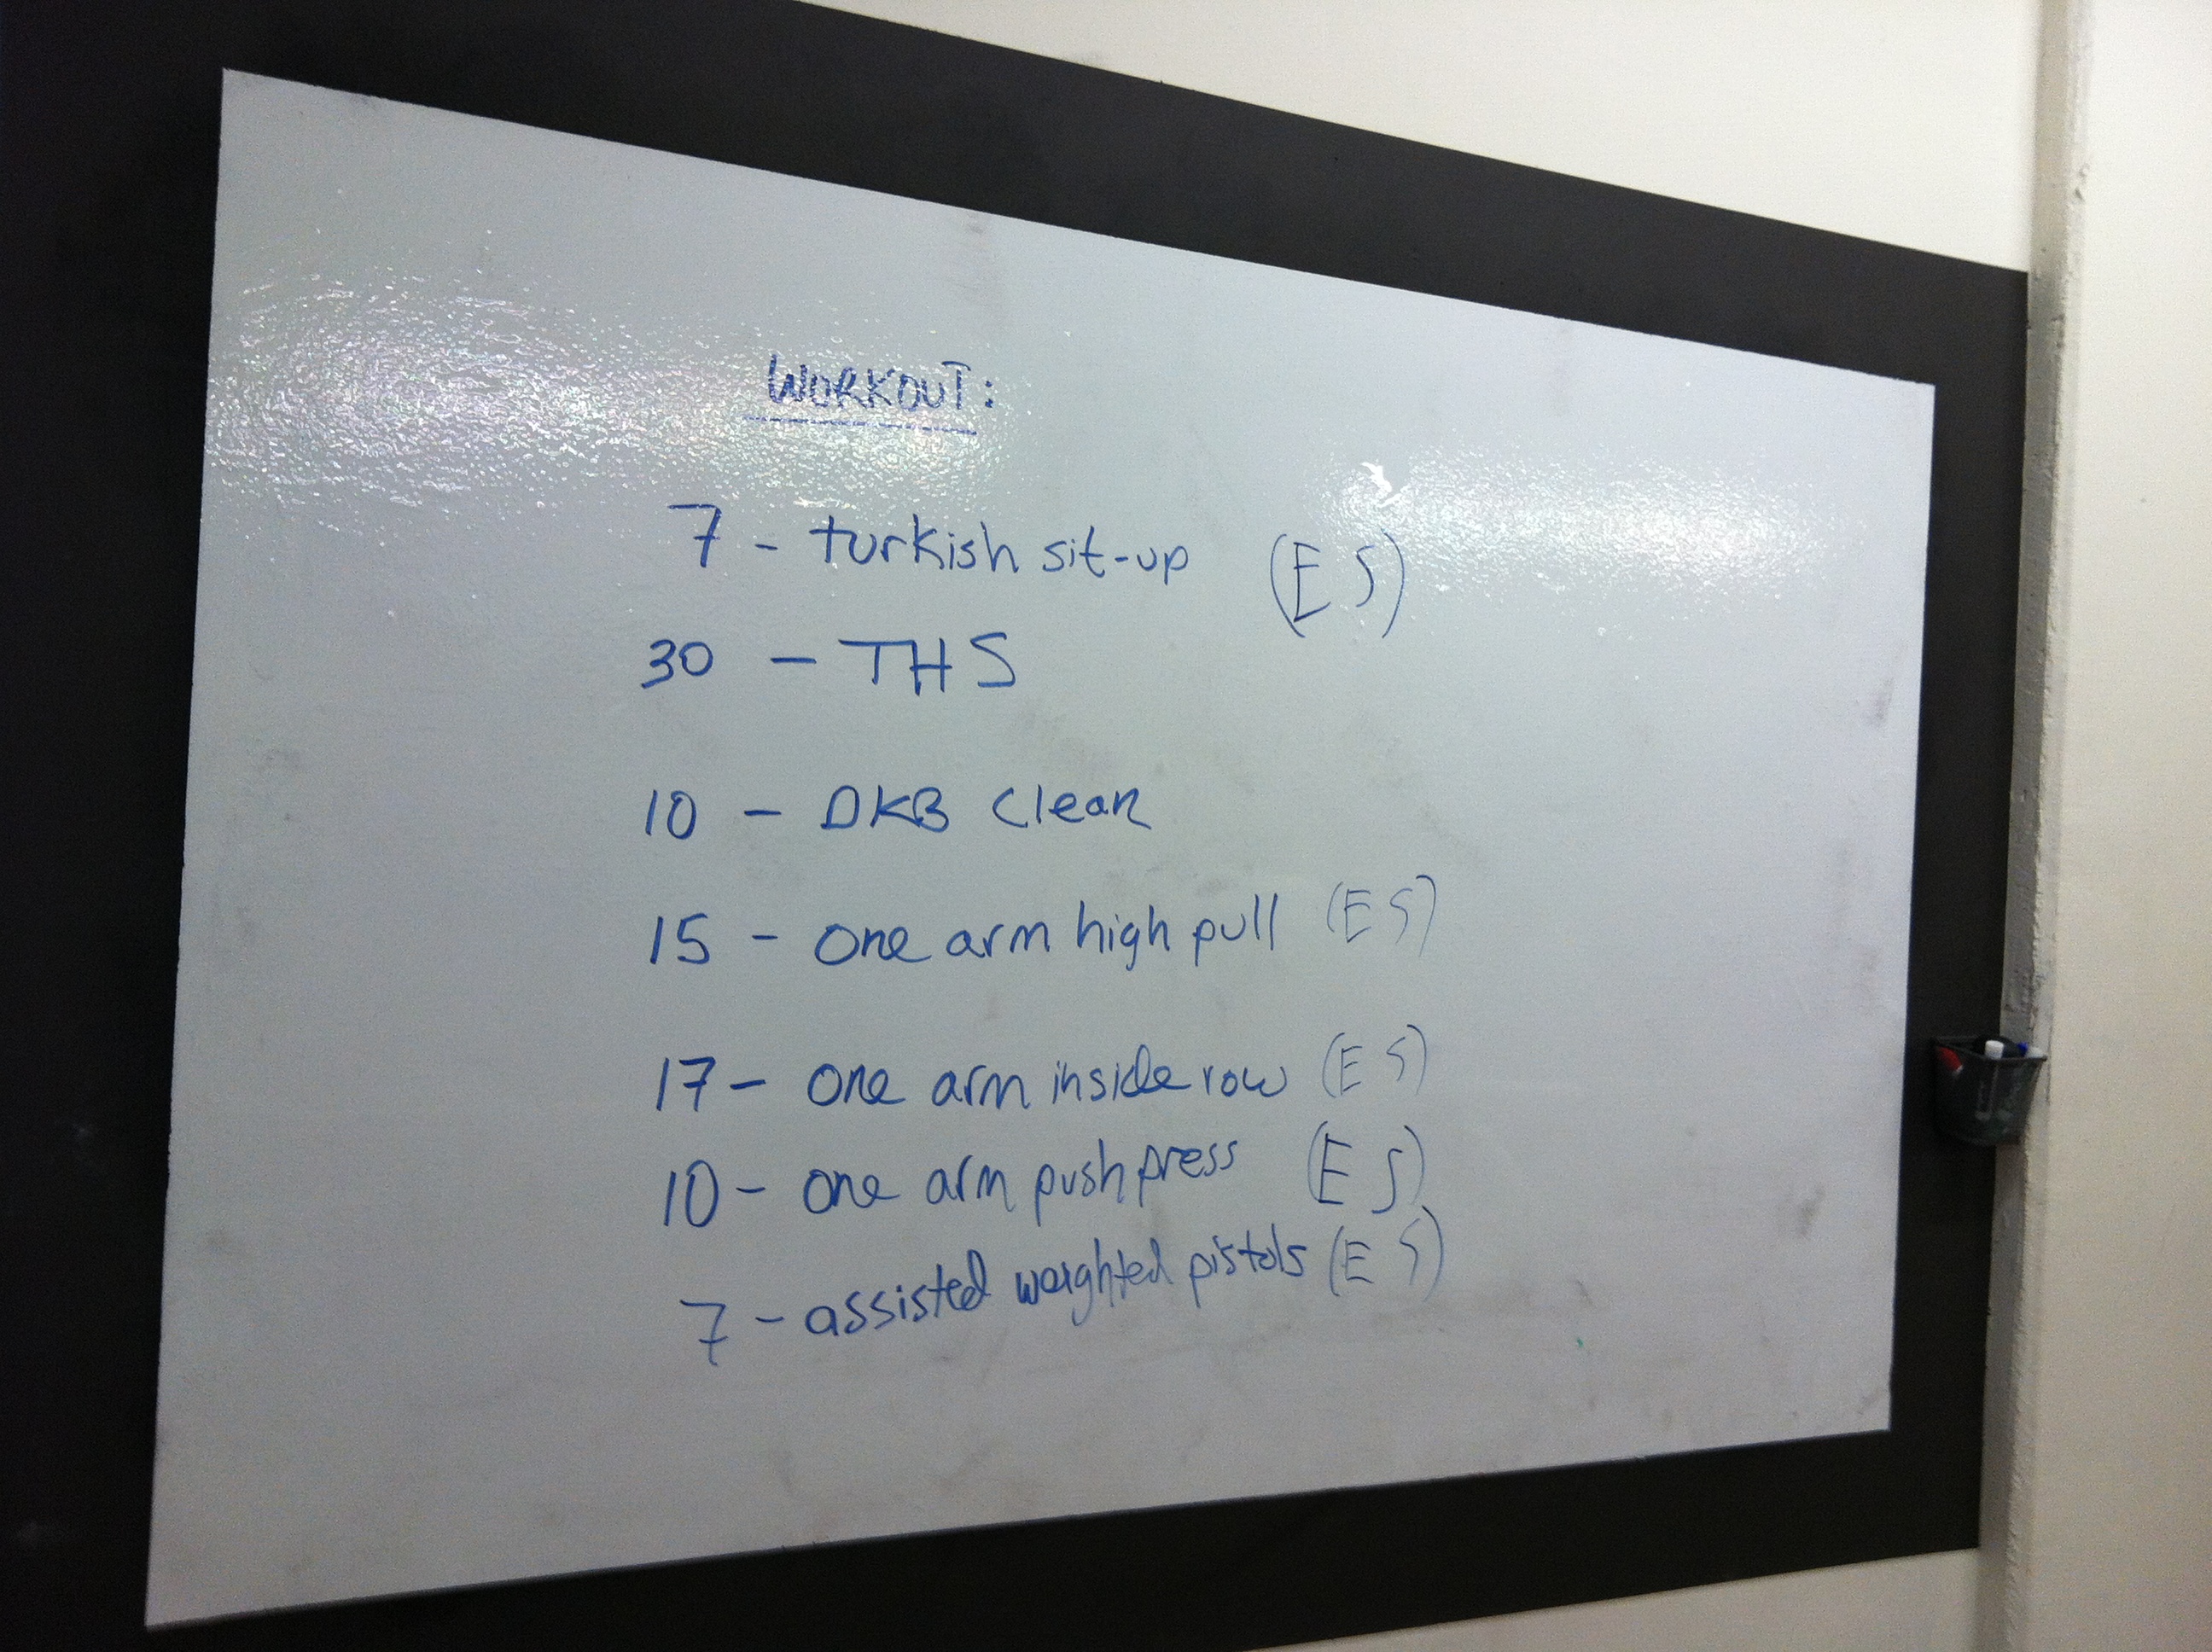 WORKOUT:
7 - turkish sit-up (ES)
30 - THS
10 - DKB clean
15 - one arm high pull (ES)
17 - one arm inside row (ES)
10 - one arm push press (ES)
7 - assisted weighted pistols (ES)